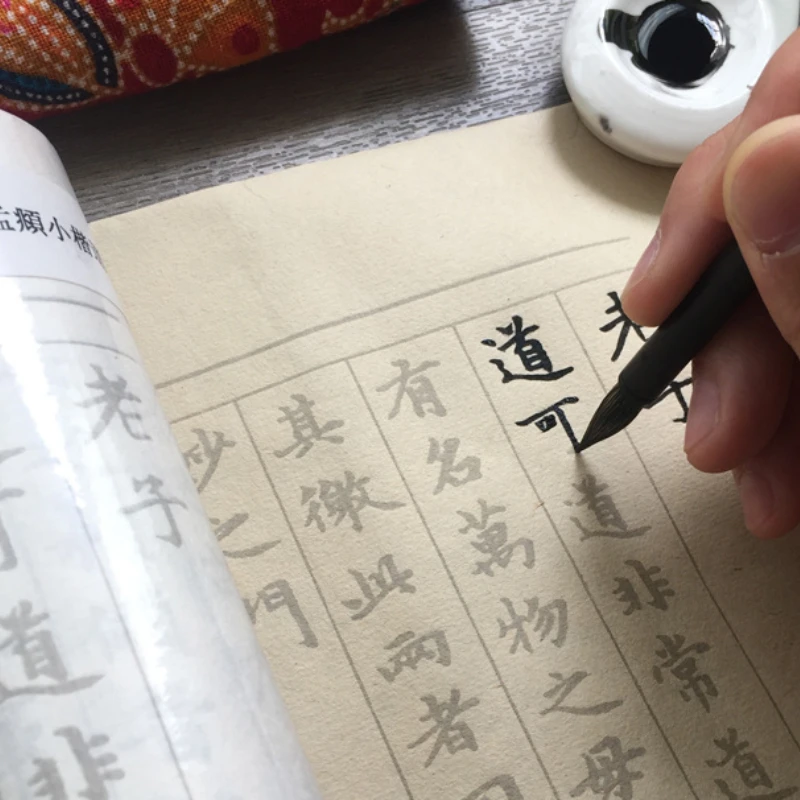 老子
道可道非常道
有名萬物之母
其徼此兩者
妙之門
孟頫小楷
老子
道非